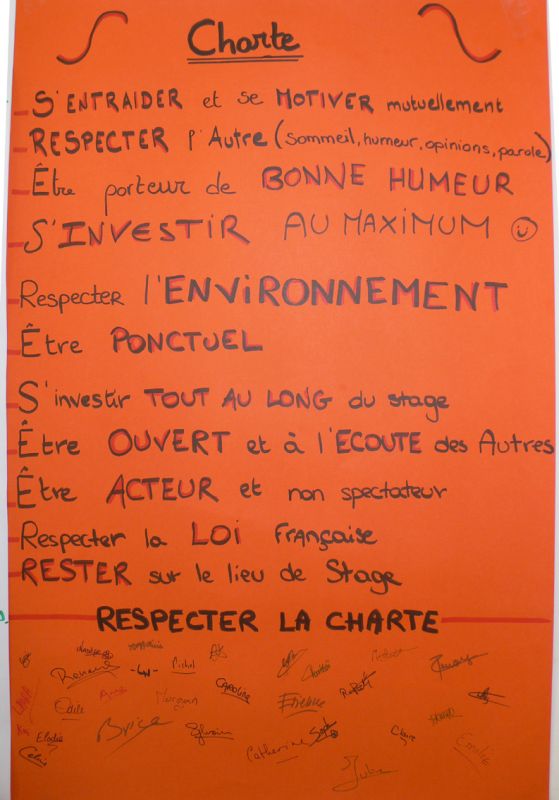 Charte
S'ENTRAIDER et se MOTIVER mutuellement
RESPECTER l'Autre (sommeil, humeur, opinions, parole)
Être porteur de BONNE HUMEUR
S'INVESTIR AU MAXIMUM
Respecter l'ENViRONNEMENT
Être PONCTUEL
S'investir TOUT AU LONG du stage
Être OUVERT et à l'ECOUTE des Autres
Être ACTEUR et non spectateur
Respecter la LOI Française
RESTER sur le lieu de Stage
RESPECTER LA CHARTE
Michel
Anna
Morgan
CAROLINE
Etienne
Edith
Brice
Sylvain
Elodie
Catherine
Claire
Emilie
Celine
Julie